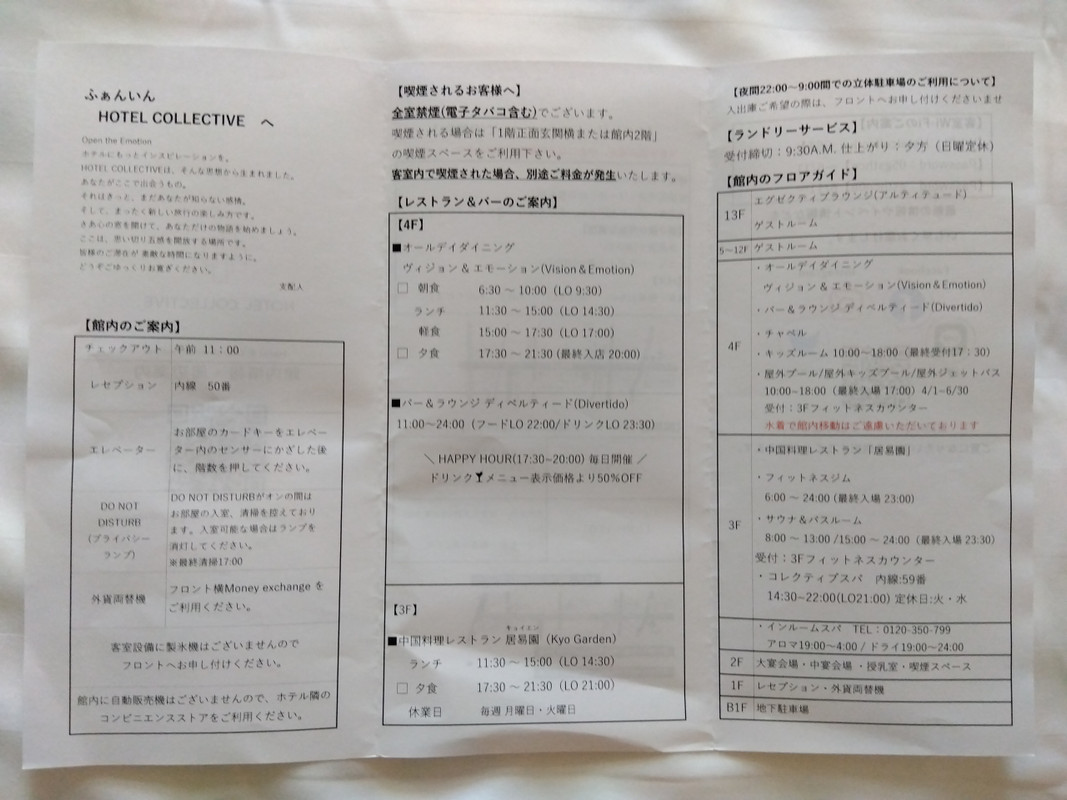 ふぁんいん
HOTEL COLLECTIVE へ
Open the Emotion
ホテルにもっとインスピレーションを。
HOTEL COLLECTIVEは、そんな思想から生まれました。
あなたがここで出会うもの。
それはきっと、まだあなたが知らない感情。
そして、まったく新しい旅行の楽しみ方です。
さあ心の窓を開けて、あなただけの物語を始めましょう。
ここは、思い切り五感を開放する場所です。
皆様のご滞在が 素敵な時間になりますように。
どうぞごゆっくりお寛ぎください。
支配人
【館内のご案内】
チェックアウト 午前 11：00
レセプション 内線 50番
エレベーター
お部屋のカードキーをエレベー
ター内のセンサーにかざした後
に、階数を押してください。
DO NOT
DISTURB
(プライバシー
ランプ)
DO NOT DISTURBがオンの間は
お部屋の入室、清掃を控えており
ます。入室可能な場合はランプを
消灯してください。
※最終清掃17:00
外貨両替機
フロント横Money exchange を
ご利用ください。
客室設備に製氷機はございませんので
フロントへお申し付けください。
館内に自動販売機はございませんので、ホテル隣の
コンビニエンスストアをご利用ください。
【喫煙されるお客様へ】
全室禁煙(電子タバコ含む)でございます。
喫煙される場合は「1階正面玄関横または館内2階」
の喫煙スペースをご利用下さい。
客室内で喫煙された場合、別途ご料金が発生いたします。
【レストラン＆バーのご案内】
【4F】
■オールデイダイニング
ヴィジョン & エモーション(Vision＆Emotion)
□ 朝食 6:30 ～ 10:00（LO 9:30)
ランチ 11:30 ～ 15:00（LO 14:30)
軽食 15:00 ～ 17:30（LO 17:00)
□ 夕食 17:30 ～ 21:30 (最終入店 20:00)
■バー＆ラウンジ ディベルティード(Divertido)
11:00～24:00（フードLO 22:00/ドリンクLO 23:30)
＼ HAPPY HOUR(17:30~20:00) 毎日開催 ／
ドリンク🍸メニュー表示価格より50%OFF
【3F】
キョイエン
■中国料理レストラン 居易園（Kyo Garden）
ランチ 11:30 ～ 15:00（LO 14:30)
□ 夕食 17:30 ～ 21:30（LO 21:00)
休業日 毎週 月曜日・火曜日
【夜間22:00～9:00間での立体駐車場のご利用について】
入出庫ご希望の際は、フロントへお申し付けくださいませ
【ランドリーサービス】
受付締切：9:30A.M. 仕上がり：夕方（日曜定休）
【館内のフロアガイド】
13F
エグゼクティブラウンジ(アルティテュード)
ゲストルーム
5～12F ゲストルーム
4F
・オールデイダイニング
ヴィジョン & エモーション(Vision＆Emotion)
・バー＆ラウンジ ディベルティード(Divertido)
・チャペル
・キッズルーム 10:00～18:00（最終受付17：30）
・屋外プール/屋外キッズプール/屋外ジェットバス
10:00~18:00（最終入場 17:00）4/1~6/30
受付：3Fフィットネスカウンター
水着で館内移動はご遠慮いただいております
3F
・中国料理レストラン「居易園」
・フィットネスジム
6:00 ～ 24:00 (最終入場 23:00)
・サウナ＆バスルーム
8:00 ～ 13:00 /15:00 ～ 24:00（最終入場 23:30)
受付：3Fフィットネスカウンター
・コレクティブスパ 内線:59番
14:30~22:00(LO21:00) 定休日:火・水
・インルームスパ TEL：0120-350-799
アロマ19:00~4:00 / ドライ19:00~24:00
2F 大宴会場・中宴会場 ・授乳室・喫煙スペース
1F レセプション・外貨両替機
B1F 地下駐車場